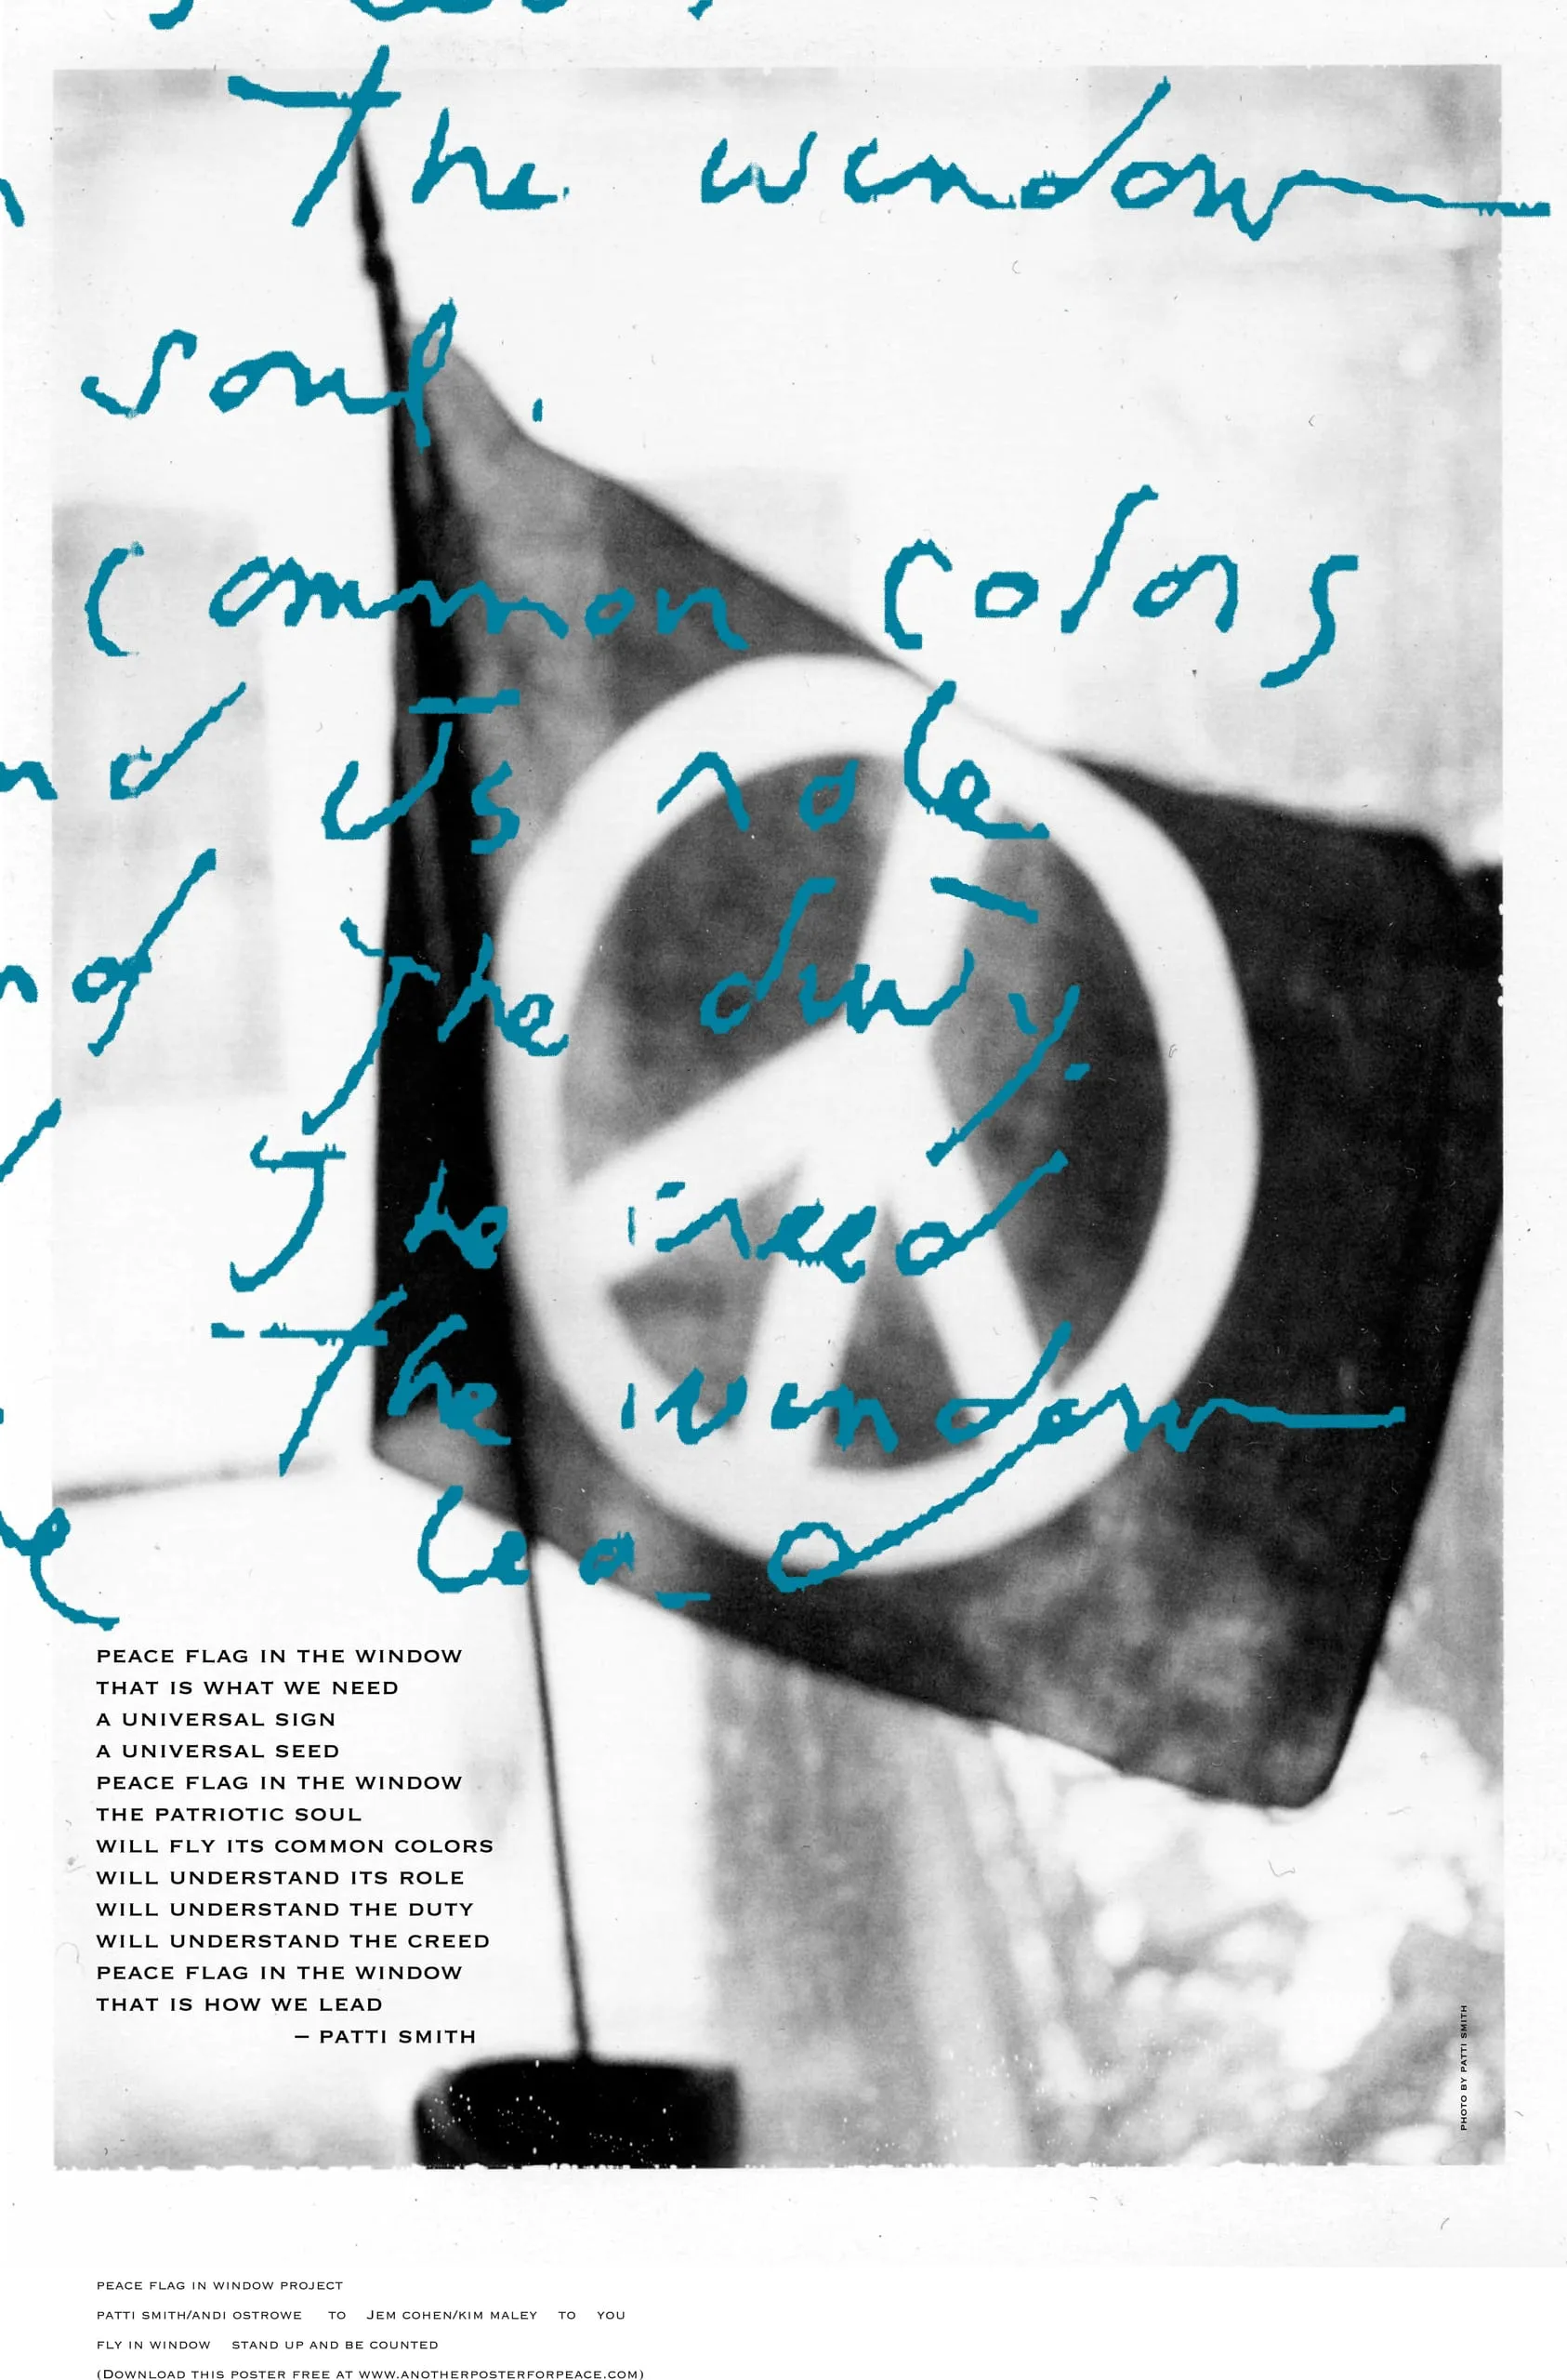 the window
soul.
common colors
nd its role
nd the duty.
the creed
the window
lead
PEACE FLAG IN THE WINDOW
THAT IS WHAT WE NEED
A UNIVERSAL SIGN
A UNIVERSAL SEED
PEACE FLAG IN THE WINDOW
THE PATRIOTIC SOUL
WILL FLY ITS COMMON COLORS
WILL UNDERSTAND ITS ROLE
WILL UNDERSTAND THE DUTY
WILL UNDERSTAND THE CREED
PEACE FLAG IN THE WINDOW
THAT IS HOW WE LEAD
— PATTI SMITH
PHOTO BY PATTI SMITH
PEACE FLAG IN WINDOW PROJECT
PATTI SMITH/ANDI OSTROWE TO JEM COHEN/KIM MALEY TO YOU
FLY IN WINDOW STAND UP AND BE COUNTED
(DOWNLOAD THIS POSTER FREE AT WWW.ANOTHERPOSTERFORPEACE.COM)